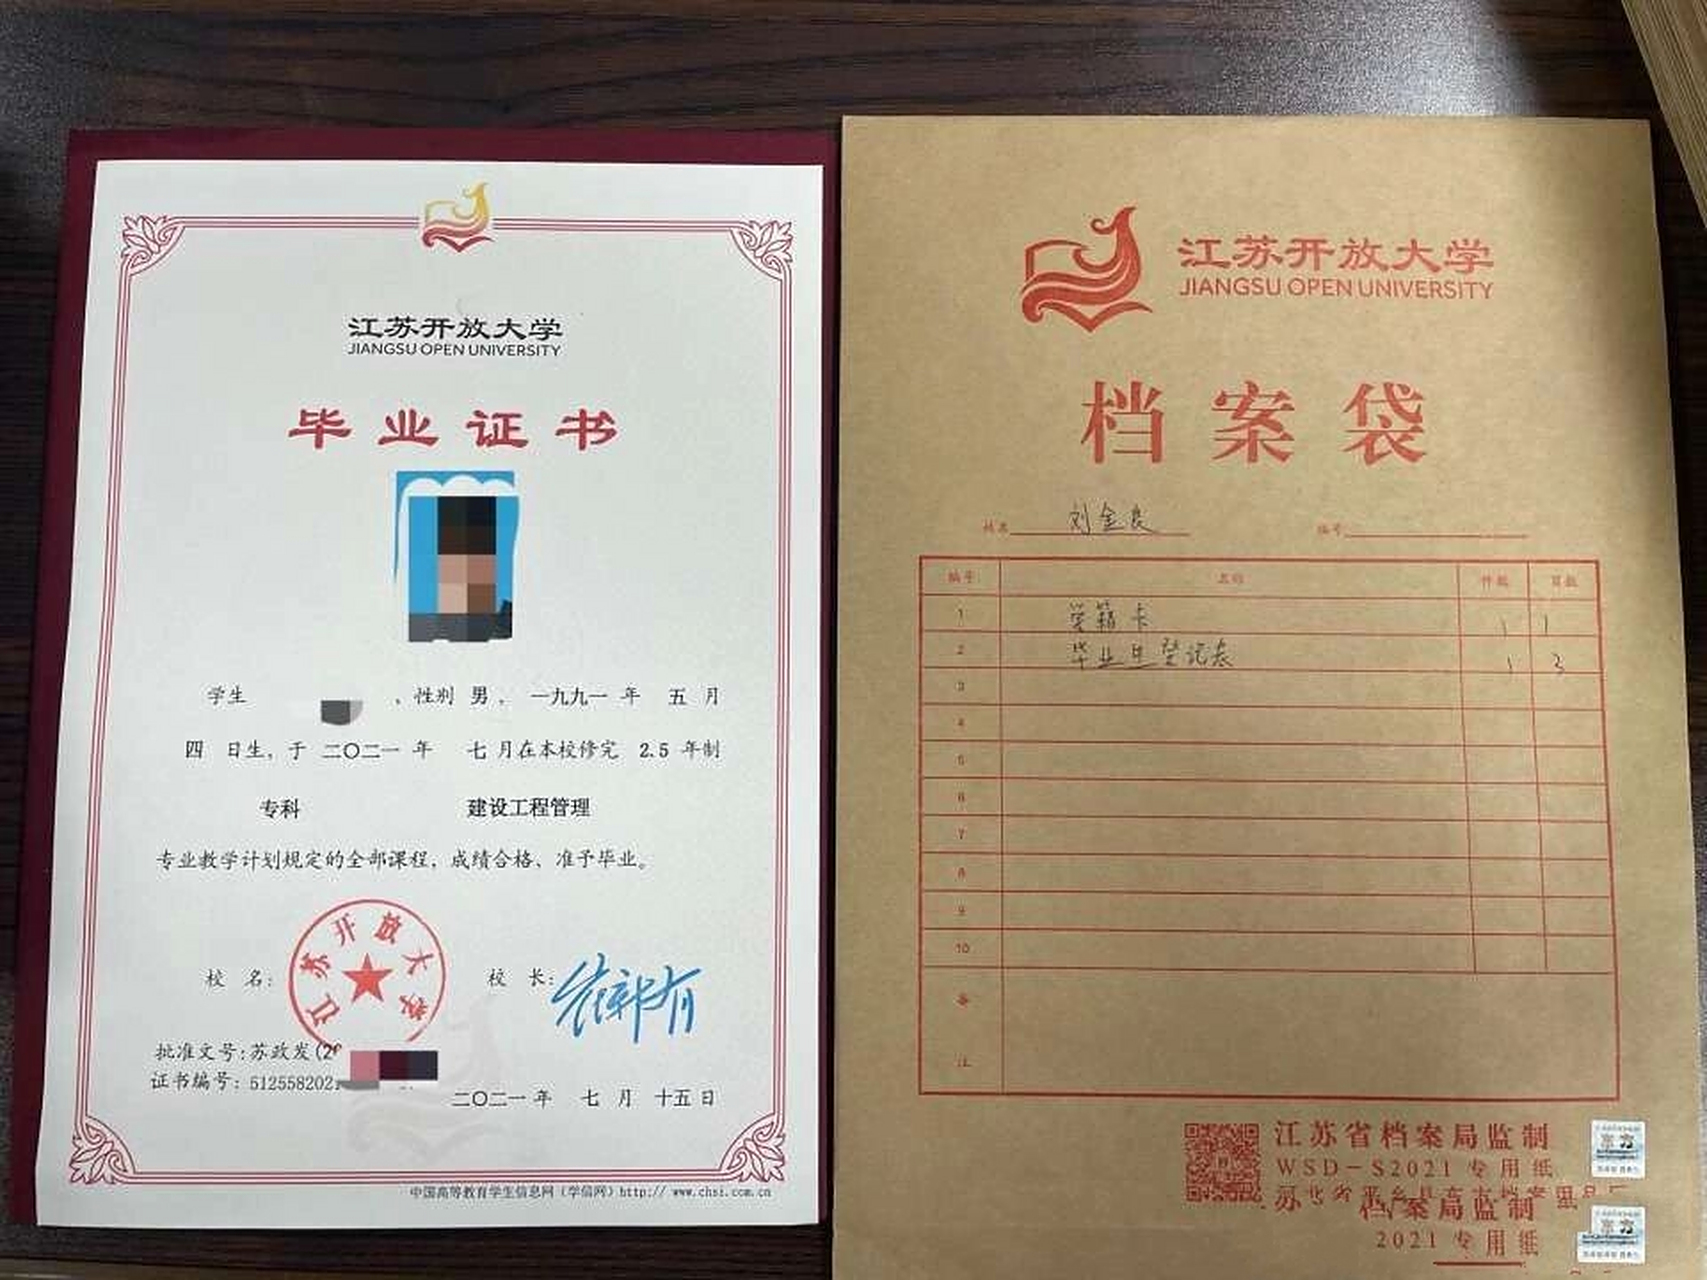 江苏开放大学
JIANGSU OPEN UNIVERSITY
毕业证书
学生 、性别 男， 一九九一 年 五 月
四 日生，于 二〇二一 年 七 月在本校修完 2.5 年制
专科 建设工程管理
专业教学计划规定的全部课程，成绩合格、准予毕业。
江苏开放大学
校 名： 校 长：
批准文号：苏政发(2
证书编号：512558202
二〇二一 年 七 月 十五 日
中国高等教育学生信息网（学信网）http:// www.chsi.com.cn
江苏开放大学
JIANGSU OPEN UNIVERSITY
档案袋
姓名 刘金良 编号
编号 名称 件数 页数
1 学籍卡 1 1
2 毕业生登记表 1 3
3
4
5
6
7
8
9
10
备
注
江苏省档案局监制
WSD-S2021 专用纸
档案局监制
2021 专用纸